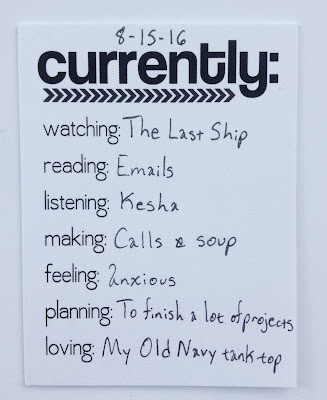 8-15-16
currently:
>>>>>>>>>>>>>>>>>>>>>>>>
watching: The Last Ship
reading: Emails
listening: Kesha
making: Calls & soup
feeling: Anxious
planning: To finish a lot of projects
loving: My Old Navy tank top